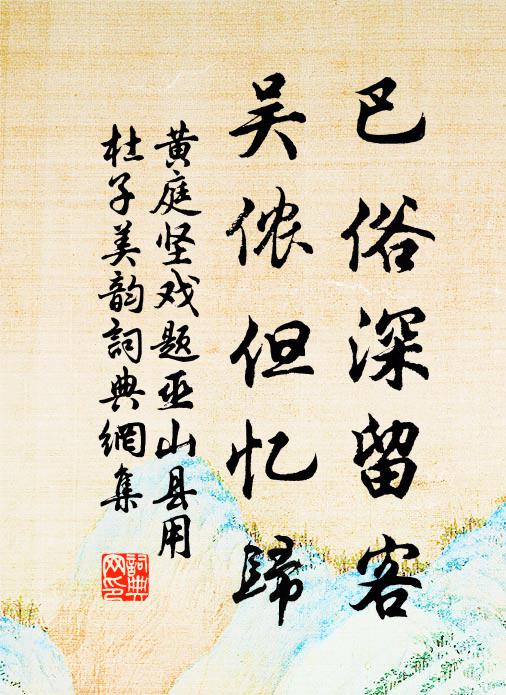 巴俗深留客
吴侬但忆歸
黄庭坚戏题巫山县用
杜子美韵詞典網集
詞典
网印